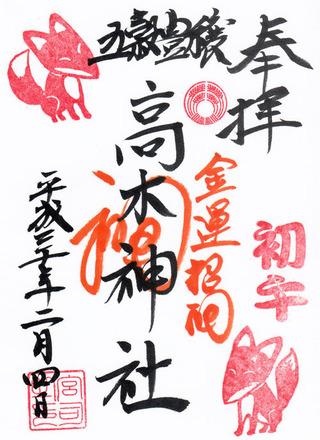 奉拝
五穀豊穣
高木神社
福
金運招福
初午
平成二十六年二月四日